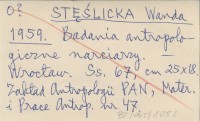 0?
STĘŚLICKA Wanda
1959. Badania antropolo-
giczne narciarzy. –
Wrocław. Ss. 67, cm 25x18.
Zakład Antropologii PAN, Mater.
i Prace Antrop. nr 47.